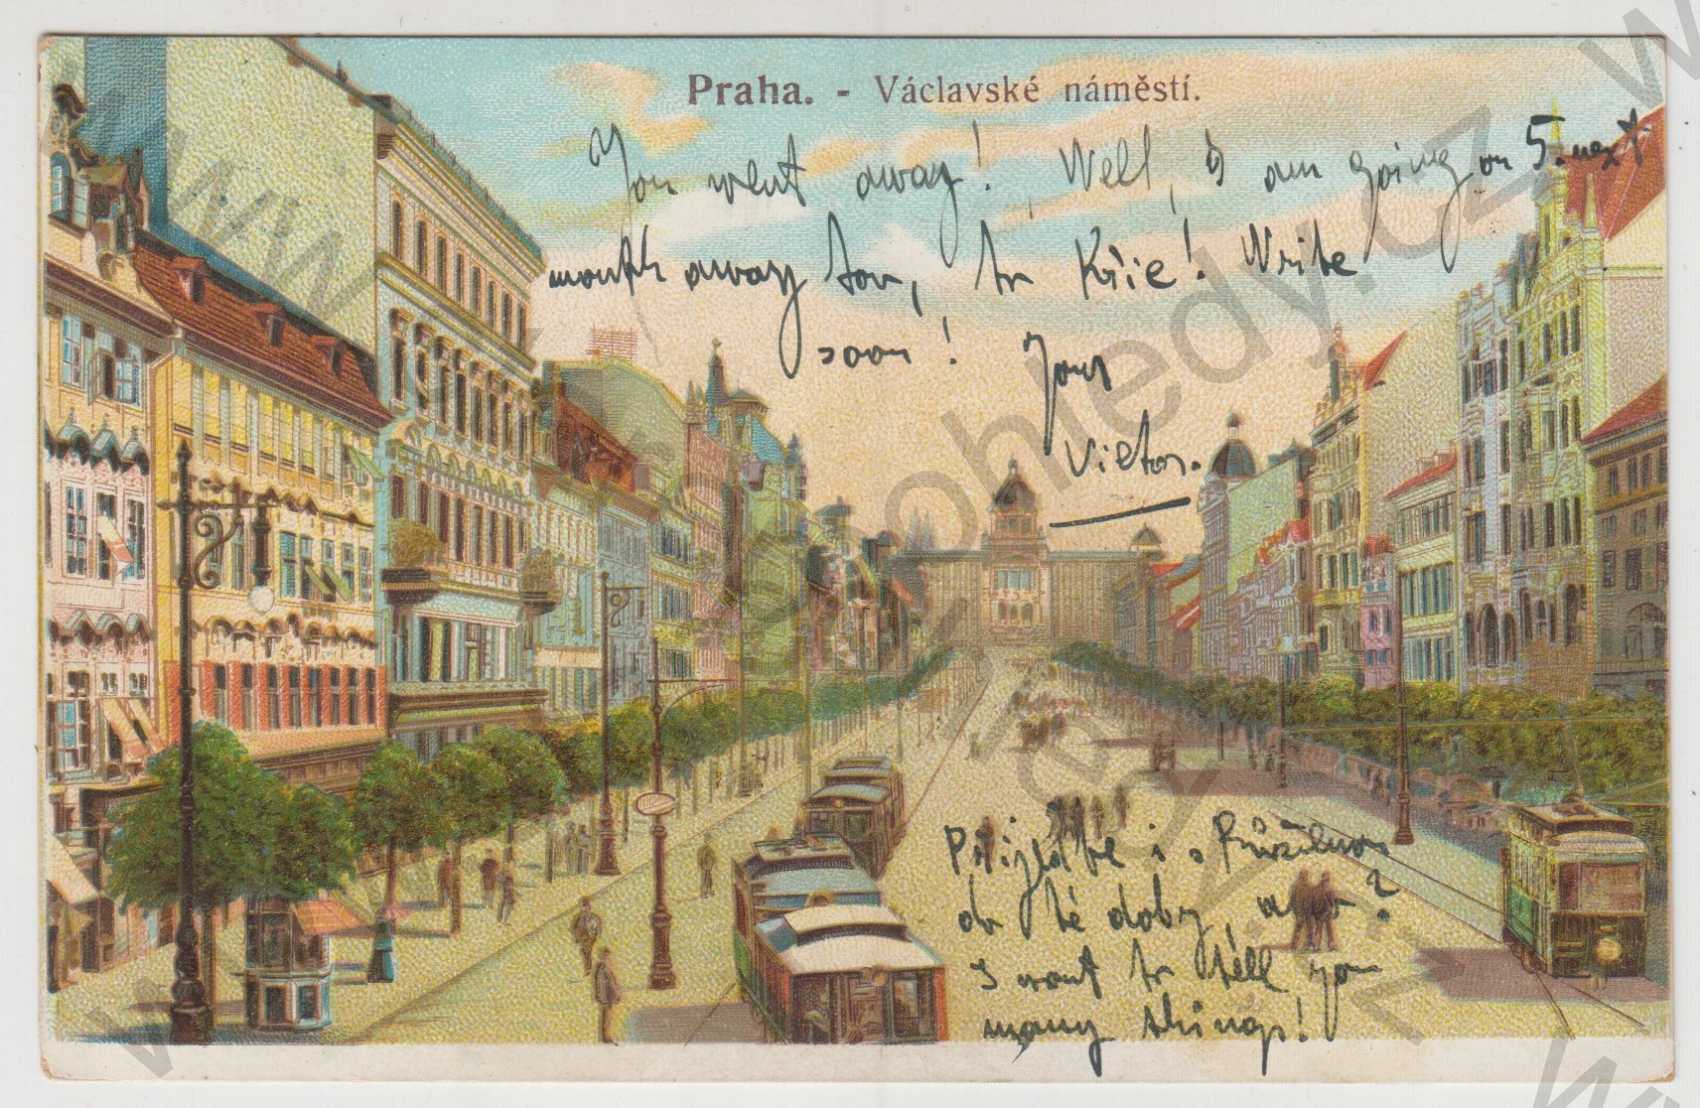 Praha. - Václavské náměstí.
You went away! Well, I am going on 5. next
month away too, to Kčie! Write
soon! Your
Victor.
Přijedete i s
do té doby, ano?
I want to tell you
many things!